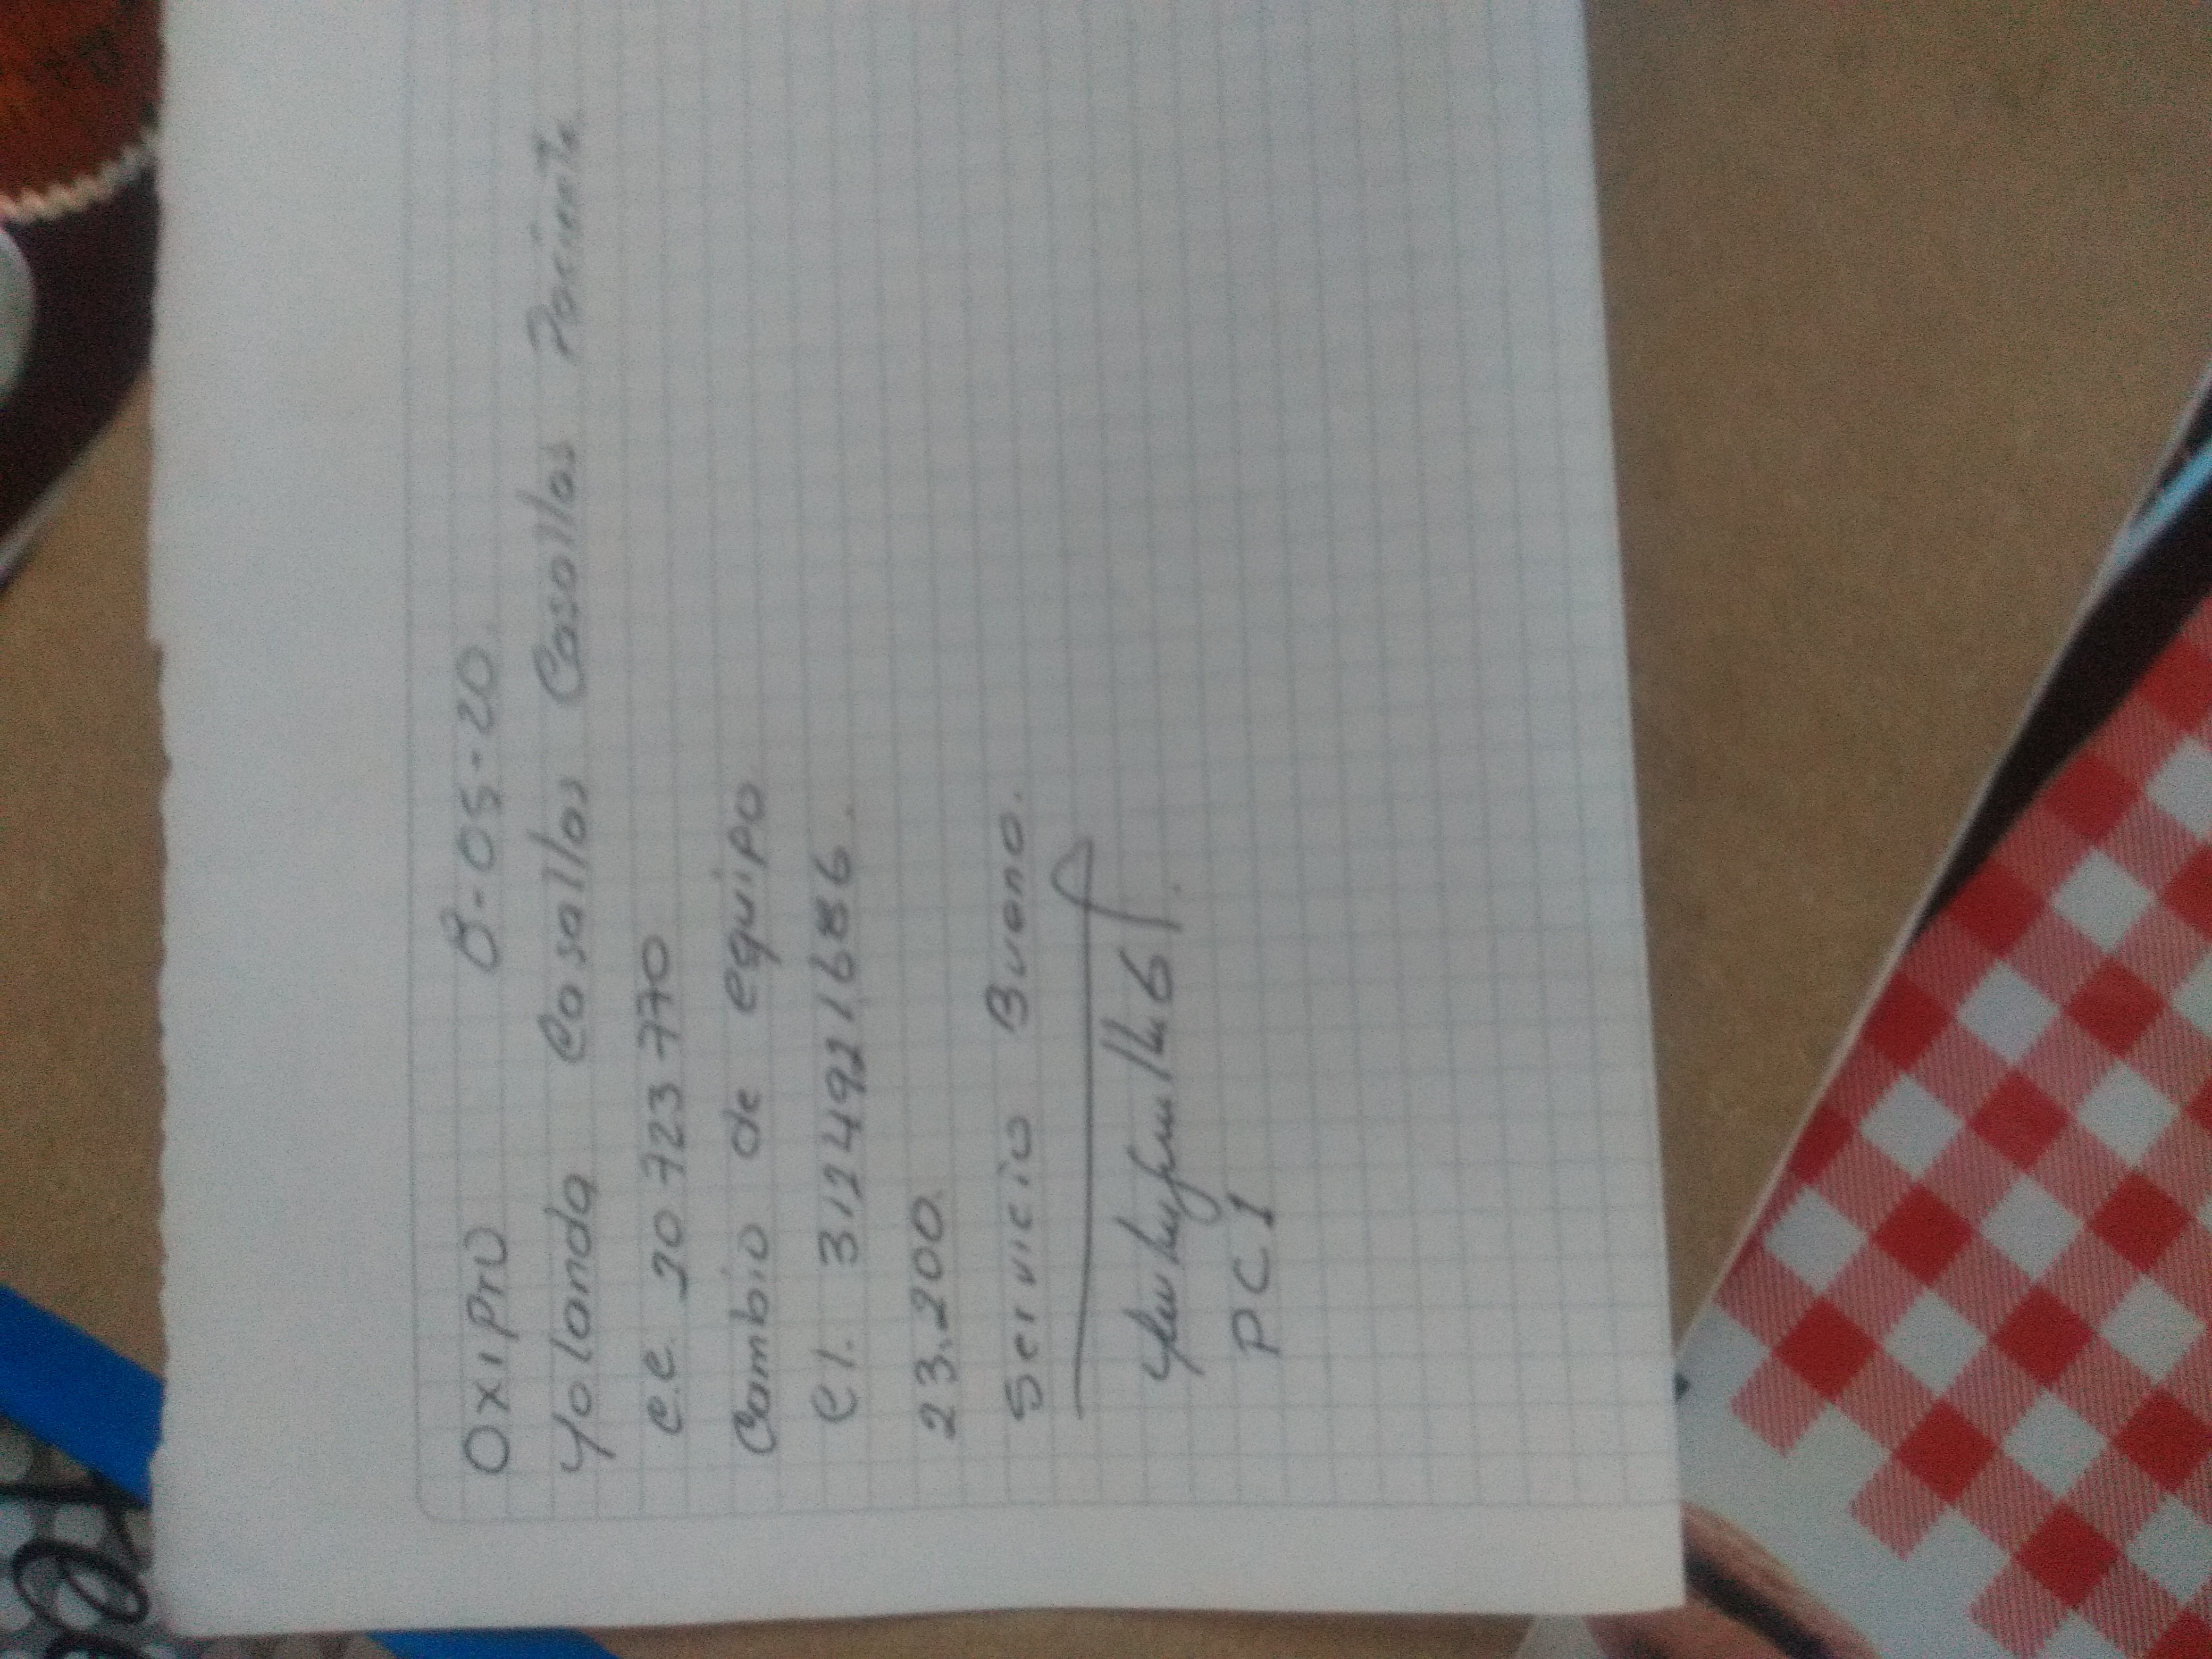 OXIPRO 8-05-20.
Yolanda Casallas Casallas Paciente
c.c. 20 723 770
Cambio de equipo
cl. 3124921686.
23.200
Servicio Bueno.
PC1